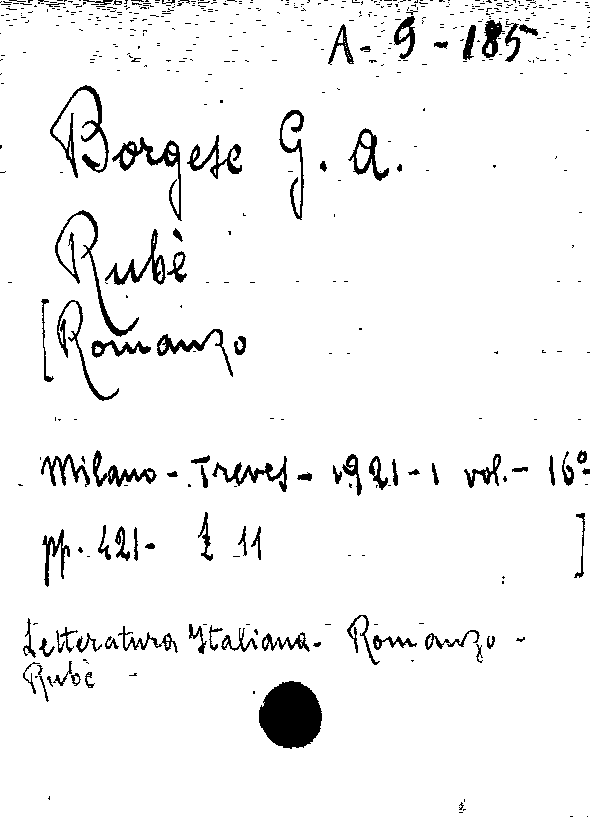 A - 9 - 185
Borgese G. A.
Rubè
[Romanzo
Milano - Treves - 1921 - 1 vol. - 16º
pp. 421 - £ 11 ]
Letteratura Italiana - Romanzo -
Rubè -